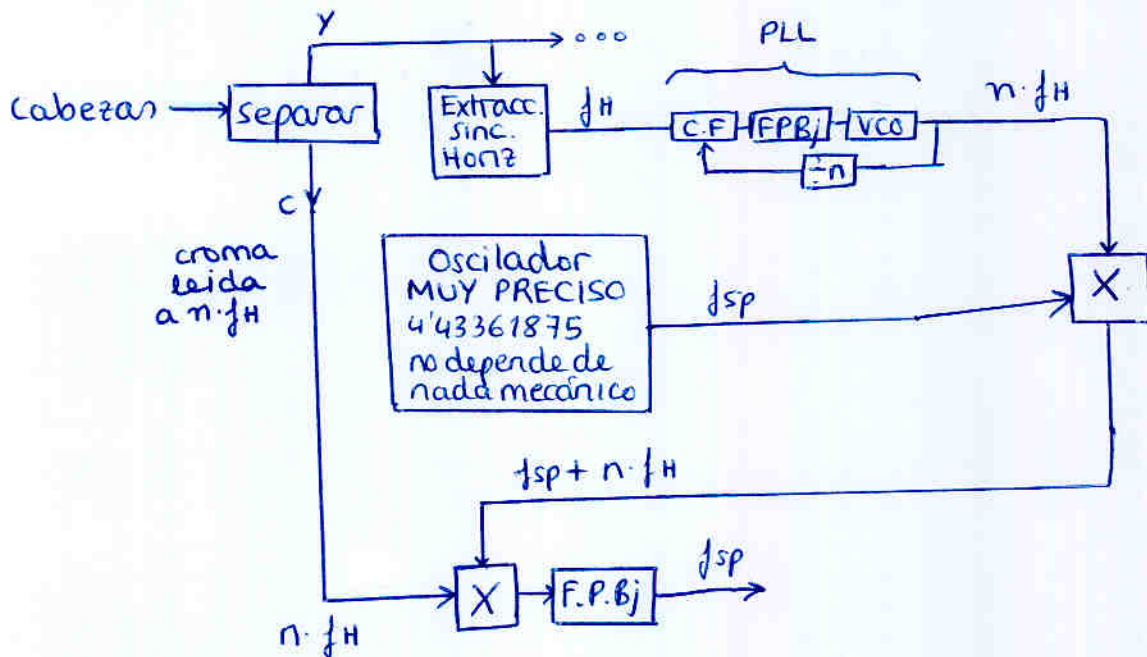 Y
PLL
Cabezas
separar
Extracc.
sinc.
Horiz
fH
C.F
FPBj
VCO
n·fH
÷n
C
croma
leida
a n·fH
Oscilador
MUY PRECISO
4'43361875
no depende de
nada mecánico
fsp
X
fsp + n·fH
n·fH
X
F.P.Bj
fsp